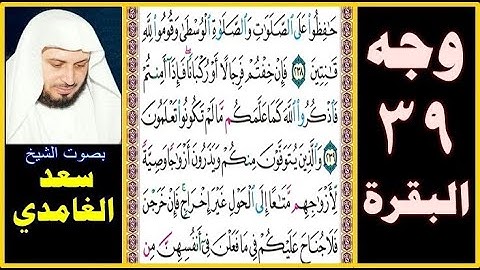 وجه
٣٩
البقرة
حَٰفِظُوا۟ عَلَى ٱلصَّلَوَٰتِ وَٱلصَّلَوٰةِ ٱلْوُسْطَىٰ وَقُومُوا۟ لِلَّهِ
قَٰنِتِينَ ٢٣٨ فَإِنْ خِفْتُمْ فَرِجَالًا أَوْ رُكْبَانًا ۖ فَإِذَآ أَمِنتُمْ
فَٱذْكُرُوا۟ ٱللَّهَ كَمَا عَلَّمَكُم مَّا لَمْ تَكُونُوا۟ تَعْلَمُونَ
٢٣٩ وَٱلَّذِينَ يُتَوَفَّوْنَ مِنكُمْ وَيَذَرُونَ أَزْوَٰجًا وَصِيَّةً
لِّأَزْوَٰجِهِم مَّتَٰعًا إِلَى ٱلْحَوْلِ غَيْرَ إِخْرَاجٍ ۚ فَإِنْ خَرَجْنَ
فَلَا جُنَاحَ عَلَيْكُمْ فِى مَا فَعَلْنَ فِىٓ أَنفُسِهِنَّ مِن
بصوت الشيخ
سعد
الغامدي